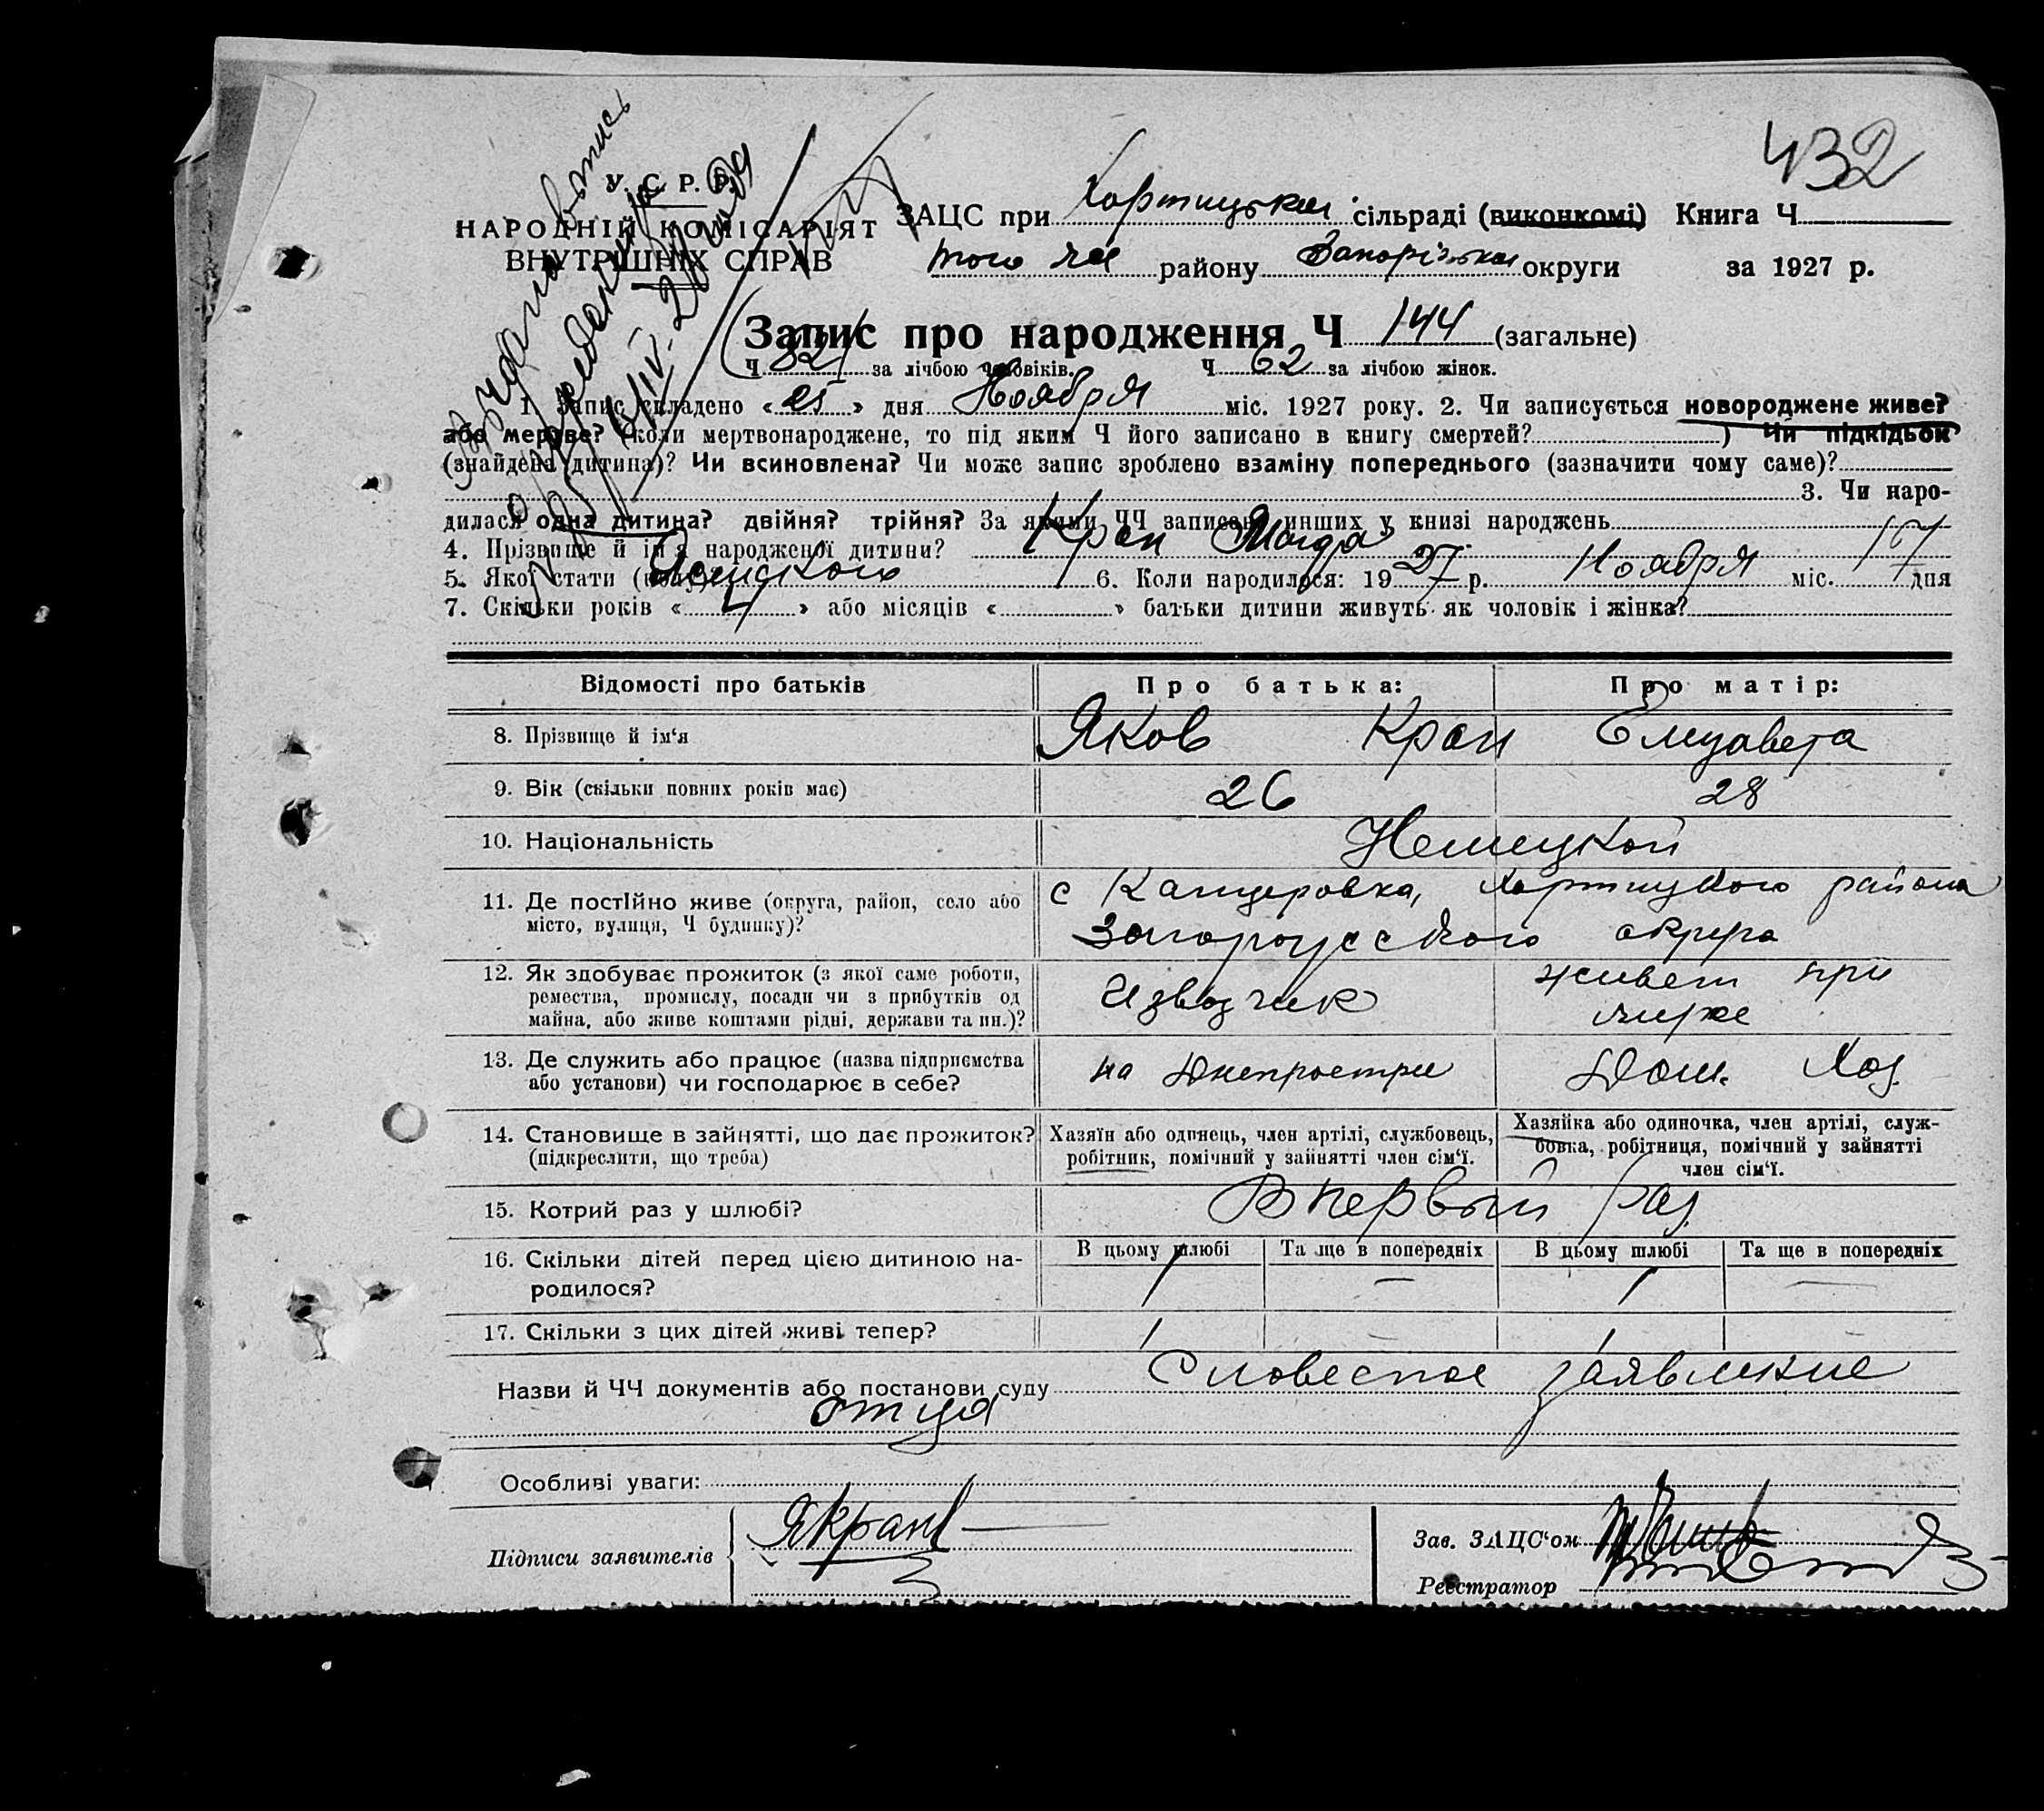 432
У. С. Р. Р.
НАРОДНІЙ КОМІСАРІЯТ
ВНУТРІШНІХ СПРАВ
ЗАЦС при Хортицькой сільраді (виконкомі) Книга Ч
того же району Запорізькой округи за 1927 р.
Запис про народження Ч 144 (загальне)
(Ч 82) за лічбою чоловіків. Ч 62 за лічбою жінок.
1. Запис складено « 25 » дня Ноября міс. 1927 року. 2. Чи записується новороджене живе?
або мертве? (коли мертвонароджене, то під яким Ч його записано в книгу смертей? ) Чи підкідьок
(знайдена дитина)? Чи всиновлена? Чи може запис зроблено взаміну попереднього (зазначити чому саме)?
3. Чи наро-
дилася одна дитина? двійня? трійня? За якими ЧЧ записано инших у книзі народжень
4. Прізвище й ім'я народженої дитини? Кран Магда
5. Якої статі (полу) Женского 6. Коли народилося: 1927 р. Ноября міс. дня
7. Скільки років « 4 » або місяців « » батьки дитини живуть як чоловік і жінка?
Відомості про батьків Про батька: Про матір:
8. Прізвище й ім'я Яков Кран Елизавета
9. Вік (скільки повних років має) 26 28
10. Національність Немецкой
11. Де постійно живе (округа, район, село або місто, вулиця, Ч будинку)?
с Канцеровка, Хортицкого района
Запорожского округа
12. Як здобуває прожиток (з якої саме роботи,
ремества, промислу, посади чи з прибутків од
майна, або живе коштами рідні, держави та ин.)?
Извозчик живет при муже
13. Де служить або працює (назва підприємства
або установи) чи господарює в себе?
на Днепрострое Дом. Хоз.
14. Становище в зайнятті, що дає прожиток?
(підкреслити, що треба)
Хазяїн або одинець, член артілі, службовець,
робітник, помічний у зайнятті член сім'ї.
Хазяйка або одиночка, член артілі, служ-
бовка, робітниця, помічний у зайнятті
член сім'ї.
15. Котрий раз у шлюбі? Впервый раз
16. Скільки дітей перед цією дитиною на-
родилося?
В цьому шлюбі Та ще в попередніх В цьому шлюбі Та ще в попередніх
1 — 1 —
17. Скільки з цих дітей живі тепер? 1 1
Назви й ЧЧ документів або постанови суду Словесное заявление
отца
Особливі уваги:
Підписи заявителів ЯКран
Зав. ЗАЦС'ом
Реєстратор